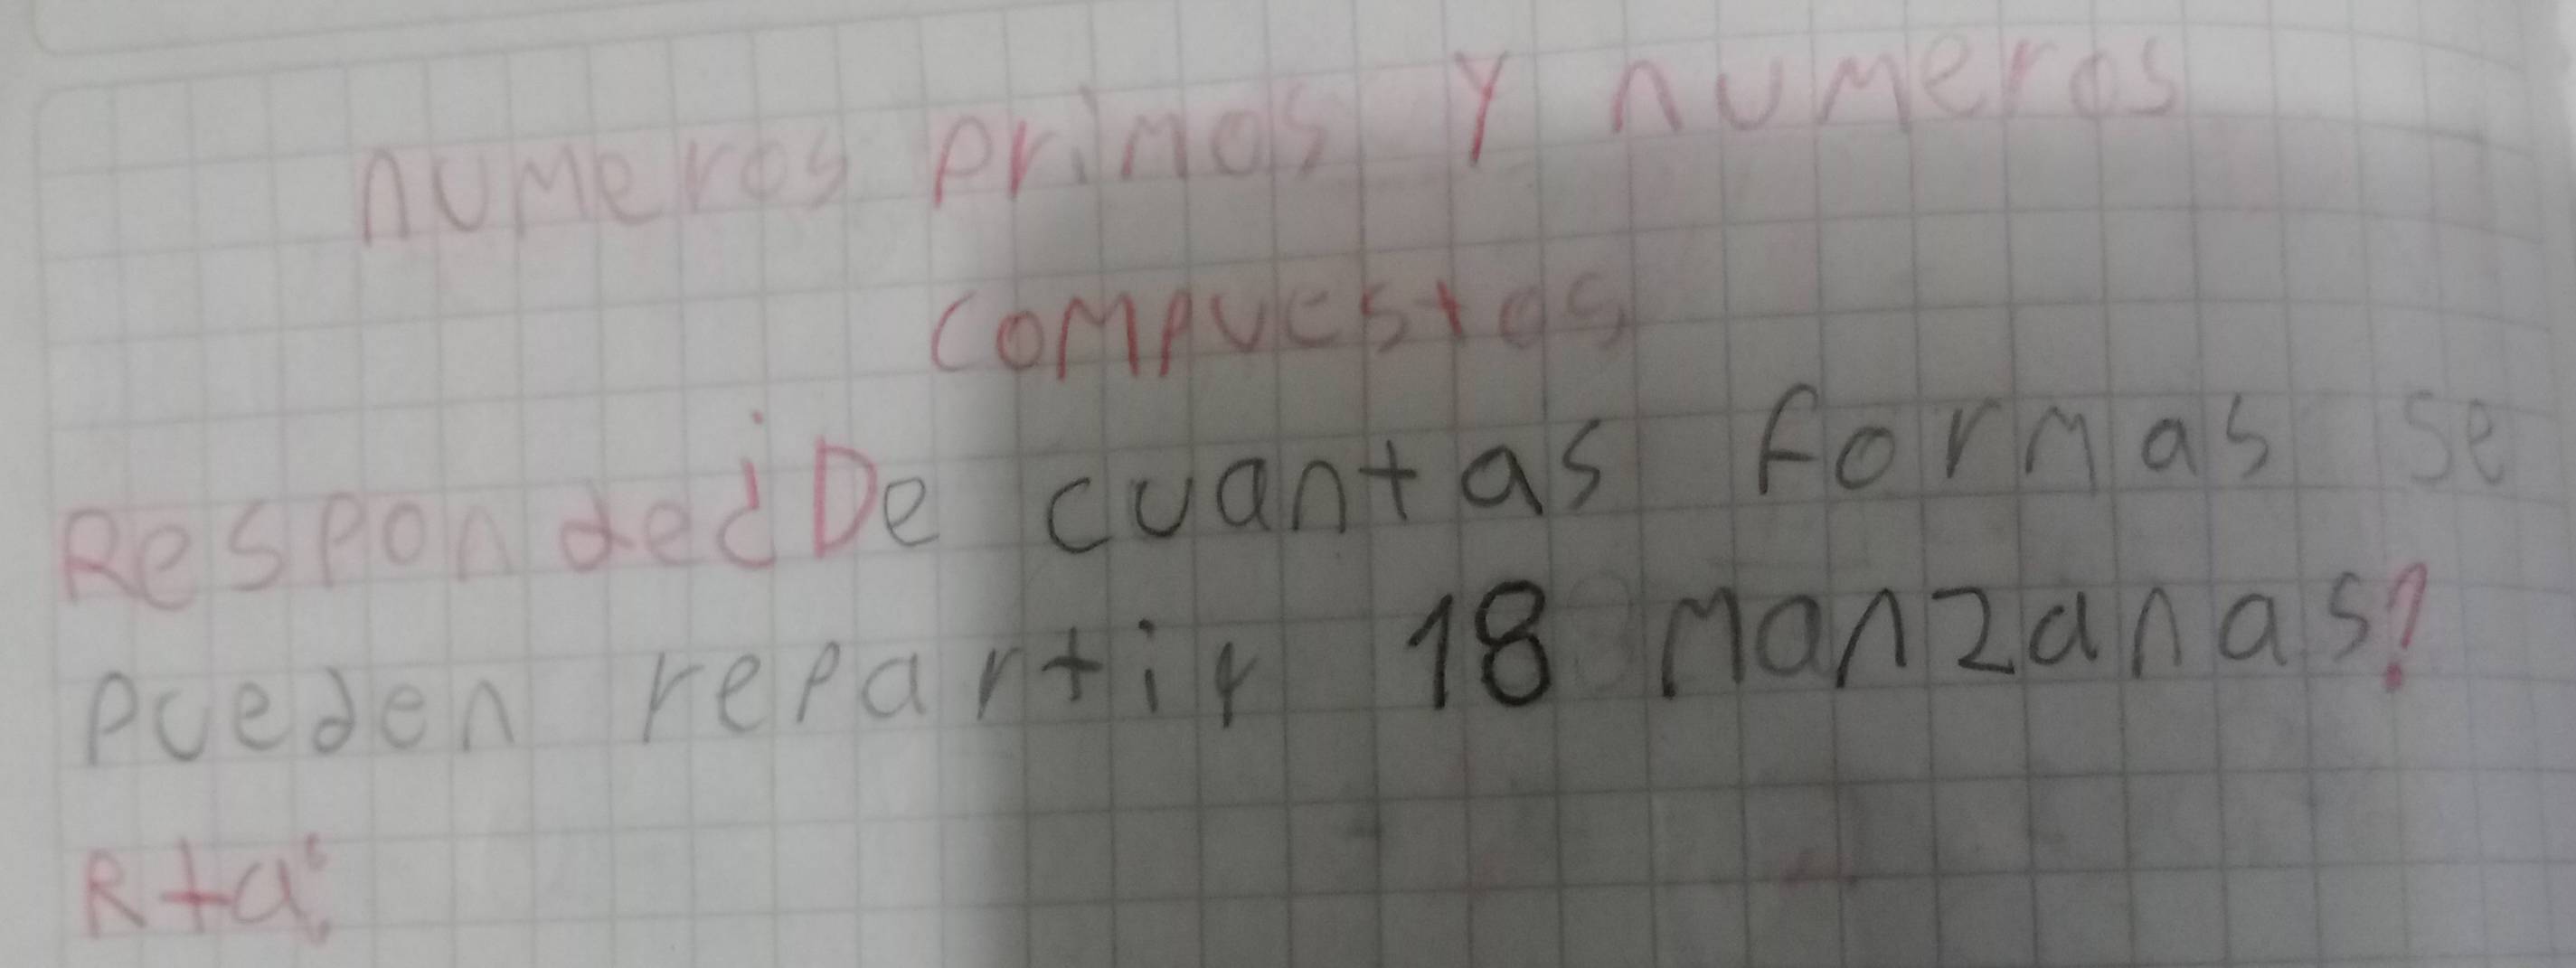 numeros primos y numeros
compuestos
Responde ¿De cuantas formas se
pueden repartir 18 manzanas?
Rta: